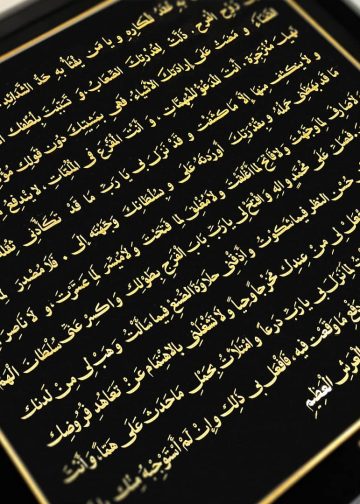 عُقَدُ الْمَكَارِهِ وَ يَا مَنْ يُفْثَأُ بِهِ حَدُّ الشَّدَائِدِ
رَوْحِ الْفَرَجِ. ذَلَّتْ لِقُدْرَتِكَ الصِّعَابُ وَ تَسَبَّبَتْ بِلُطْفِكَ
الْقَضَاءُ وَ مَضَتْ عَلَى إِرَادَتِكَ الْأَشْيَاءُ. فَهِيَ بِمَشِيَّتِكَ دُونَ قَوْلِكَ
نَهْيِكَ مُنْزَجِرَةٌ. أَنْتَ الْمَدْعُوُّ لِلْمُهِمَّاتِ، وَ أَنْتَ الْمَفْزَعُ فِي الْمُلِمَّاتِ، لَا يَنْدَفِعُ
وَ لَا يَنْكَشِفُ مِنْهَا إِلَّا مَا كَشَفْتَ وَ قَدْ نَزَلَ بِي يَا رَبِّ مَا قَدْ تَكَأَّدَنِي ثِقْلُهُ
مَا قَدْ بَهَظَنِي حَمْلُهُ وَ بِقُدْرَتِكَ أَوْرَدْتَهُ عَلَيَّ وَ بِسُلْطَانِكَ وَجَّهْتَهُ إِلَيَّ. فَلَا مُصْدِرَ
صَارِفَ لِمَا وَجَّهْتَ وَ لَا فَاتِحَ لِمَا أَغْلَقْتَ وَ لَا مُغْلِقَ لِمَا فَتَحْتَ وَ لَا مُيَسِّرَ لِمَا عَسَّرْتَ، وَ لَا نَاصِرَ
فَصَلِّ عَلَى مُحَمَّدٍ وَ آلِهِ وَ افْتَحْ لِي يَا رَبِّ بَابَ الْفَرَجِ بِطَوْلِكَ وَ اكْسِرْ عَنِّي سُلْطَانَ الْهَمِّ
حُسْنَ النَّظَرِ فِيمَا شَكَوْتُ وَ أَذِقْنِي حَلَاوَةَ الصُّنْعِ فِيمَا سَأَلْتُ وَ هَبْ لِي مِنْ لَدُنْكَ
لِي مِنْ عِنْدِكَ مَخْرَجًا وَحِيًّا وَ لَا تَشْغَلْنِي بِالاهْتِمَامِ عَنْ تَعَاهُدِ فُرُوضِكَ
لِمَا نَزَلَ بِي يَا رَبِّ ذَرْعًا وَ امْتَلَأْتُ بِحَمْلِ مَا حَدَثَ عَلَيَّ هَمًّا، وَ أَنْتَ
مَا وَقَعْتُ فِيهِ، فَافْعَلْ بِي ذَلِكَ وَ إِنْ لَمْ أَسْتَوْجِبْهُ مِنْكَ
الْعَرْشِ الْعَظِيمِ